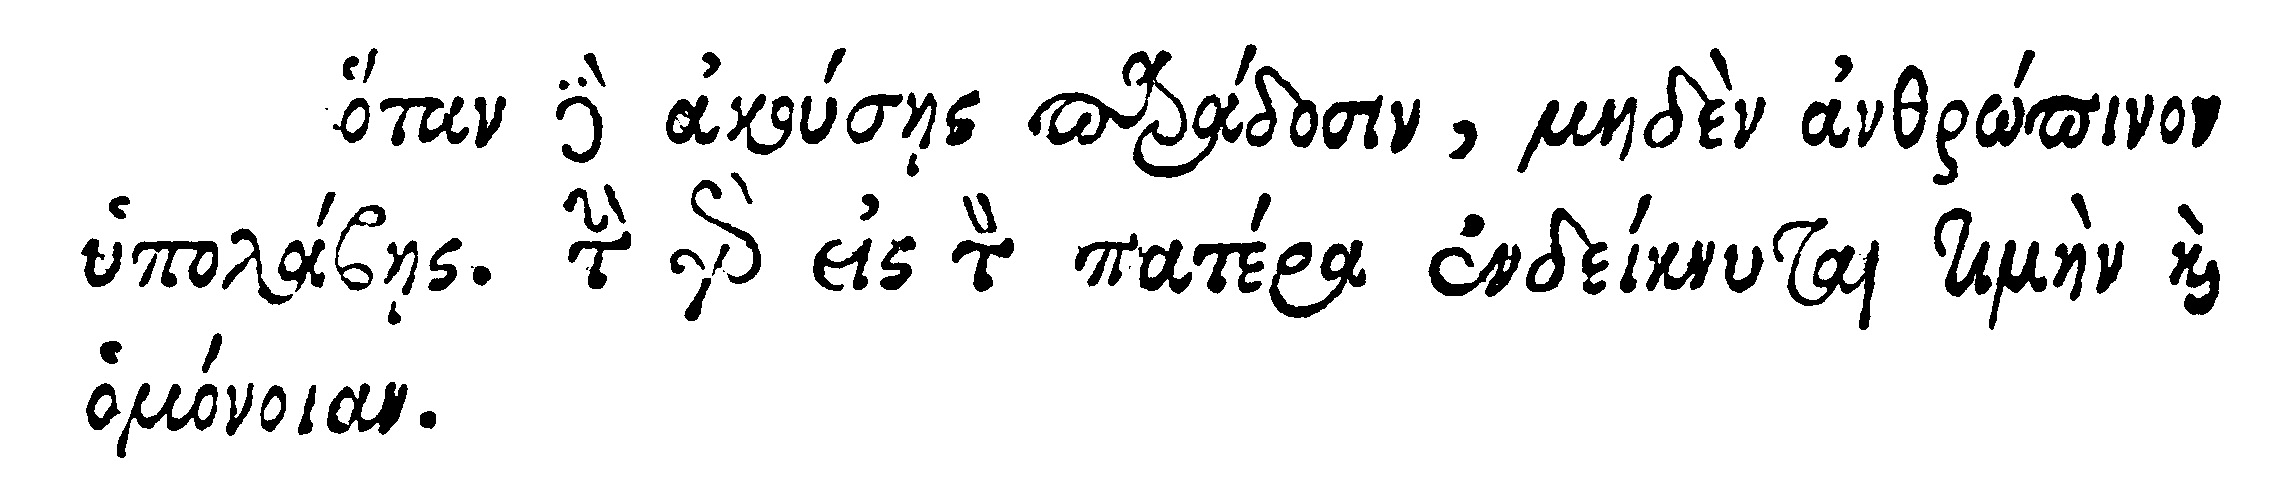 ὅταν δὲ ἀκούσῃς παράδοσιν, μηδὲν ἀνθρώπινον
ὑπολάβῃς. τὴν γὰρ εἰς τὸν πατέρα ἐνδείκνυται τιμὴν καὶ
ὁμόνοιαν.